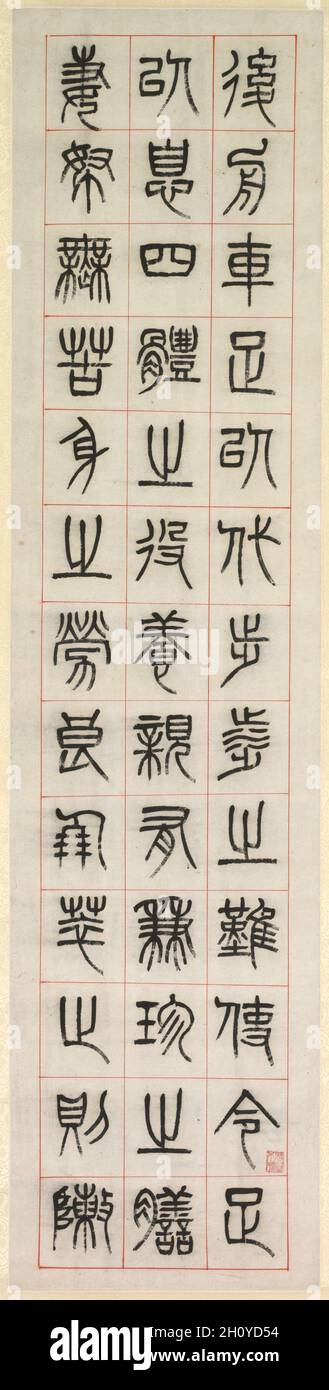 後舟車足以代步涉之難使令足
以息四體之役養親有兼珍之膳
妻孥無苦身之勞良朋萃止則陳
alamy
alamy
Image ID: 2H0YD54
www.alamy.com